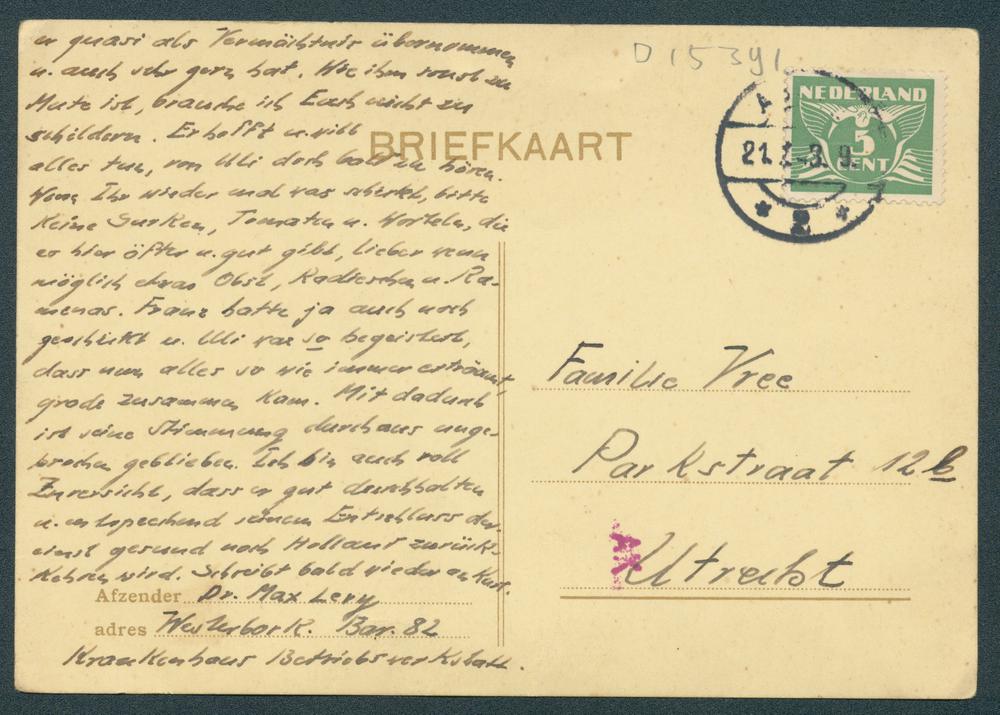 er quasi als Vermächtnis übernommen
u. auch sehr gern hat. Wie ihm sonst zu
Mute ist, brauche ich Euch nicht zu
schildern. Er hofft u. will
alles tun, von Uli doch bald zu hören.
Wenn Ihr wieder mal was schickt, bitte
keine Gurken, Tomaten u. Worteln, die
es hier öfter u. gut gibt, lieber wenn
möglich etwas Obst, Radieschen u. Ra-
menas. Franz hatte ja auch noch
geschickt u. Uli war so begeistert,
dass nun alles so wie immer erträumt,
grade zusammen kam. Mit dadurch
ist seine Stimmung durchaus unge-
brochen geblieben. Ich bin auch voll
Zuversicht, dass er gut durchhalten
u. entsprechend seinem Entschluss der-
einst gesund nach Holland zurück-
kehren wird. Schreibt bald wieder an Kurt.
Afzender Dr. Max Levy
adres Westerbork. Bar. 82
Krankenhaus Betriebswerkstatt.
BRIEFKAART
D 15391
NEDERLAND
5
CENT
21
2
Familie Vree
Parkstraat 12b
Utrecht